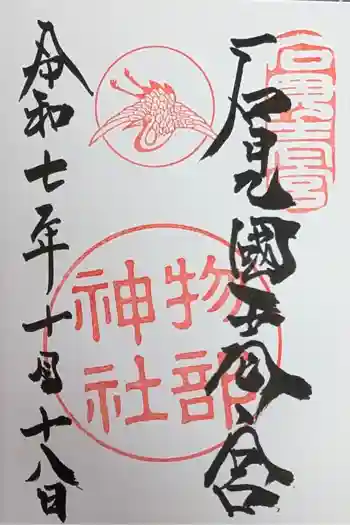 石見國一宮
石見國一宮
物部
神社
令和七年十月十八日